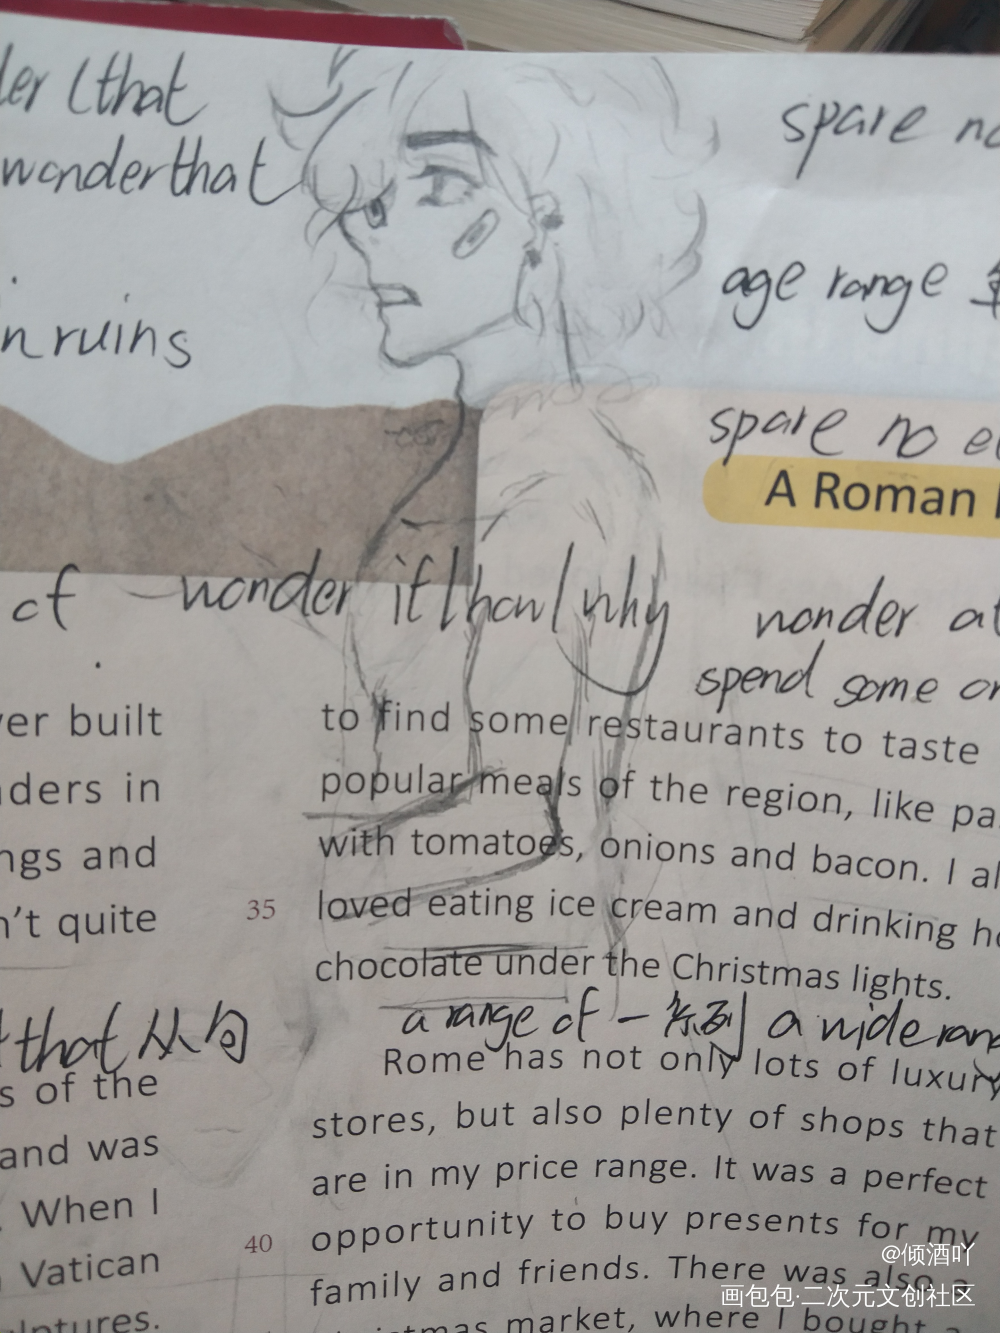 (that
wonderthat
in ruins
spare no
age range
spare no
A Roman
of wonder if/how/why
wonder at
spend some on
built
in
and
n't quite
to find some restaurants to taste
popular meals of the region, like
with tomatoes, onions and bacon. I
35 loved eating ice cream and drinking
chocolate under the Christmas lights.
that从句
a range of 一系列 a wide
s of the
and was
When I
Vatican
Rome has not only lots of luxury
stores, but also plenty of shops that
are in my price range. It was a perfect
40 opportunity to buy presents for my
family and friends. There was also a
market, where I bought
@倾酒吖
画包包·二次元文创社区